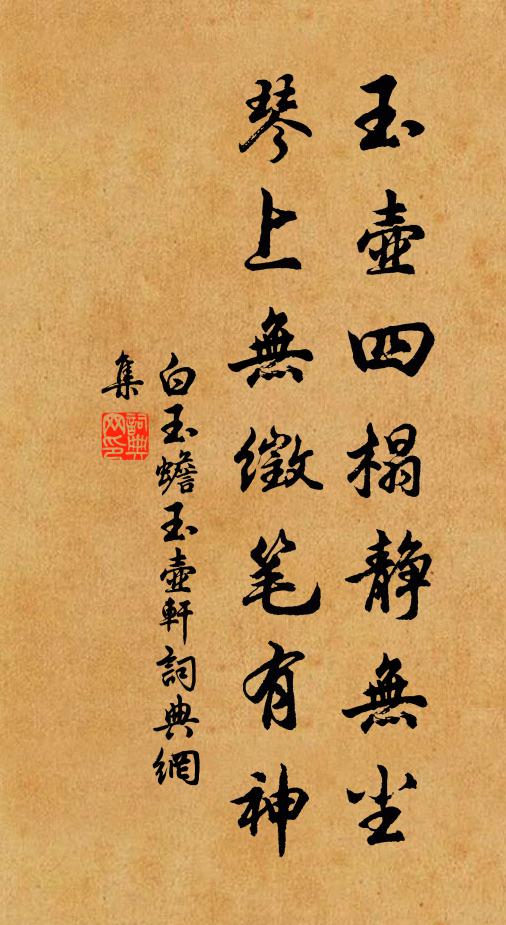 玉壺四榻静無尘
琴上無徽笔有神
白玉蟾玉壺軒詞典網
集
詞典网印